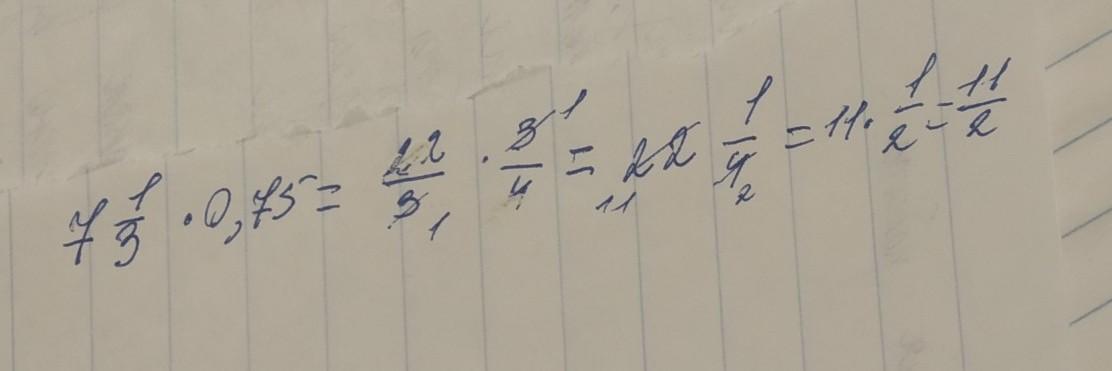 7 1/3 · 0,75 = 22/3 1 · 3/4 1 = 11 22 1/4 2 = 11 · 1/2 = 11/2